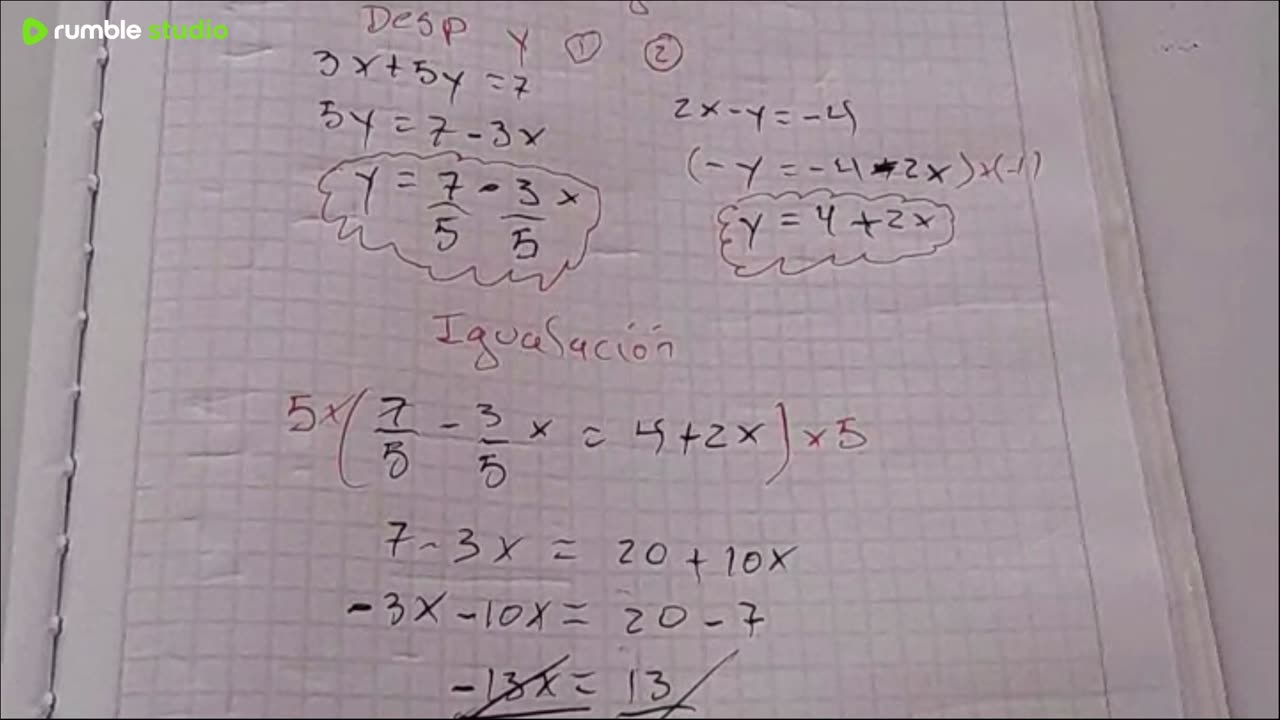 rumble studio
Desp y ① ②
3x+5y=7
5y=7-3x
y=7/5-3/5x
2x-y=-4
(-y=-4-2x)x(-1)
y=4+2x
Igualación
5x(7/5-3/5x=4+2x)x5
7-3x=20+10x
-3x-10x=20-7
-13x=13